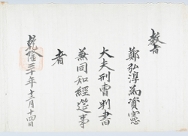 教旨
鄭弘淳爲資憲
大夫刑曹判書
兼同知經筵事
者
乾隆三十年十二月十四日